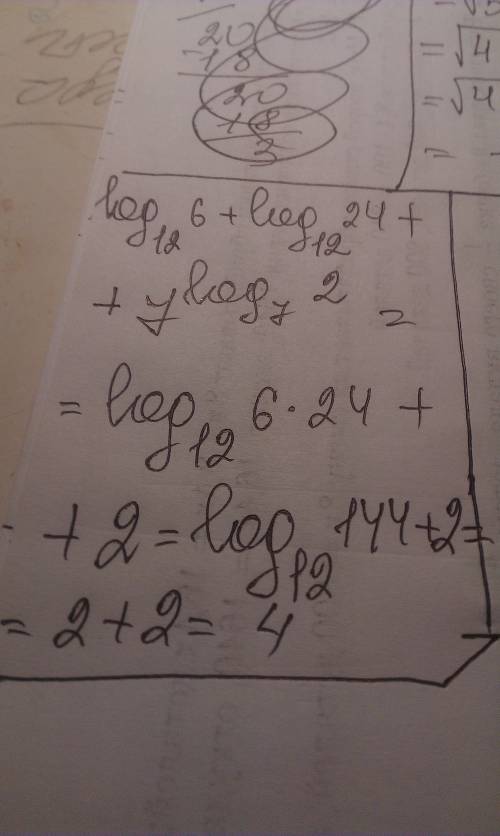 20
18
20
18
3
= √4
= √4
=
log₁₂ 6 + log₁₂ 24 +
+ 7^log₇ 2 =
= log₁₂ 6 · 24 +
+ 2 = log₁₂ 144 + 2 =
= 2 + 2 = 4